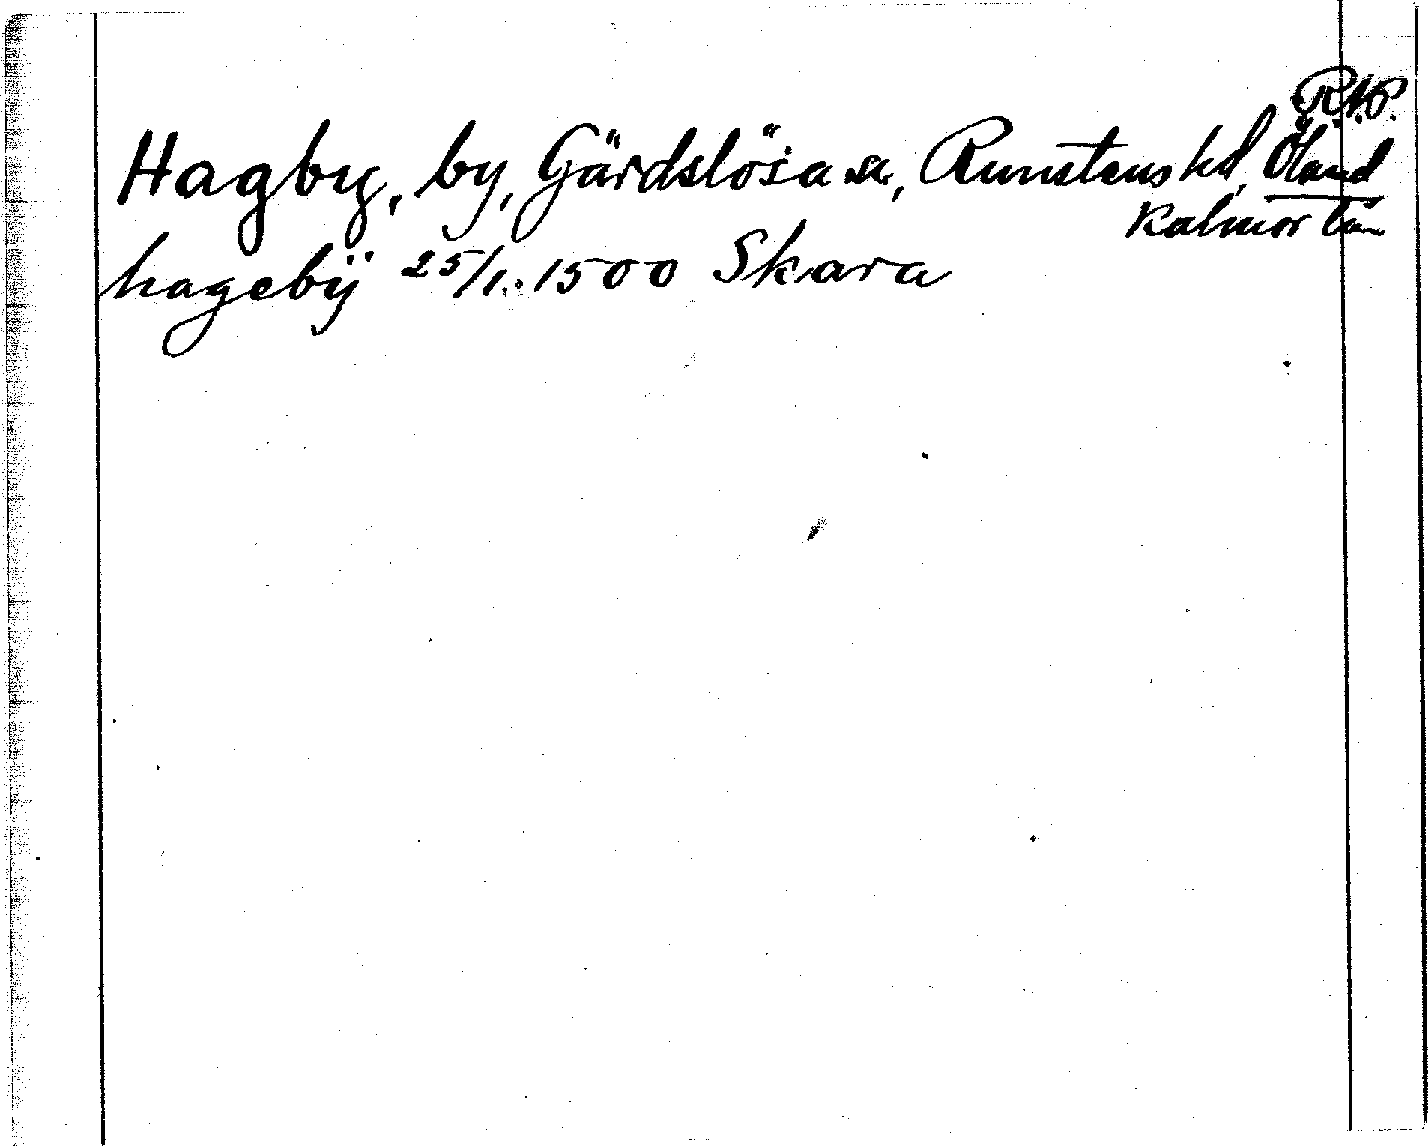 R.A.P.
Hagby, by, Gärdslösa sn, Runstens hd, Öland
Kalmar län
hagebÿ 25/1. 1500 Skara